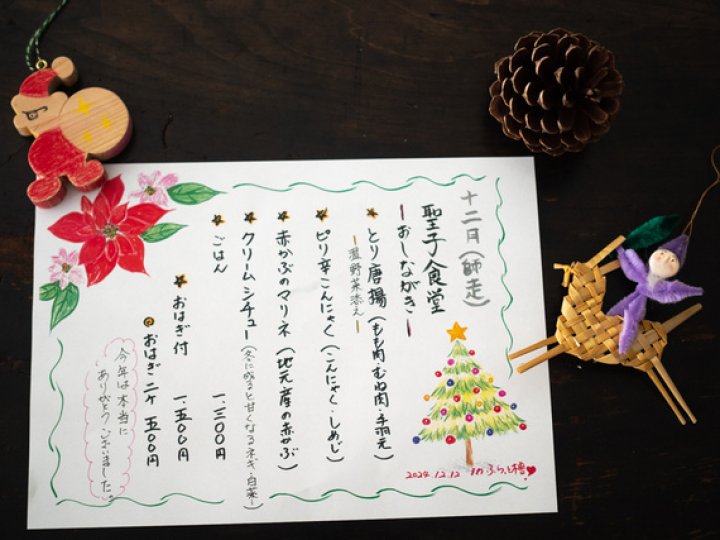 十二月(師走)
聖子食堂
ーおしながきー
★ とり唐揚(もも肉・むね肉・手羽元)
ー温野菜添えー
★ ピリ辛こんにゃく(こんにゃく・しめじ)
★ 赤かぶのマリネ(地元産の赤かぶ)
★ クリームシチュー(冬に成ると甘くなるネギ・白菜)
★ ごはん
一、三〇〇円
★ おはぎ付 一、五〇〇円
◎ おはぎ 二ケ 五〇〇円
今年は本当に
ありがとうございました。
2024.12.12 in ふらっと橹